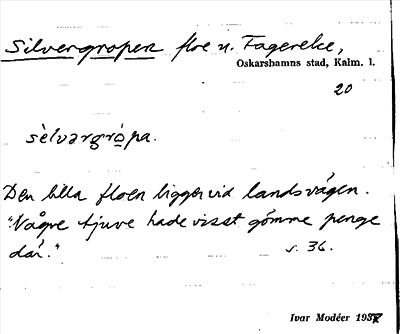 Silvergropen floe n. Fagereke,
Oskarshamns stad, Kalm. l.
20
sèlvərgrò̱pa.
Den lilla floen ligger vid landsvägen.
"Någre tjuve hade visst gömme penge
där."
s. 36.
Ivar Modéer 1937